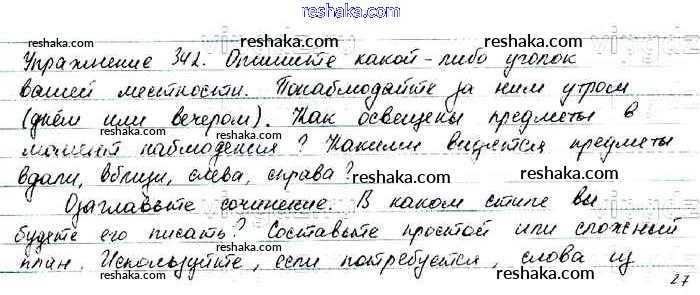 reshaka.com
Упражнение 342. Опишите какой-либо уголок
вашей местности. Понаблюдайте за ним утром
(днём или вечером). Как освещены предметы в
момент наблюдения? Какими видятся предметы
вдали, вблизи, слева, справа?
Озаглавьте сочинение. В каком стиле вы
будете его писать? Составьте простой или сложный
план. Используйте, если потребуется, слова из
27
reshaka.com reshaka.com
reshaka.com reshaka.com
reshaka.com reshaka.com
reshaka.com reshaka.com
reshaka.com reshaka.com
reshaka.com reshaka.com